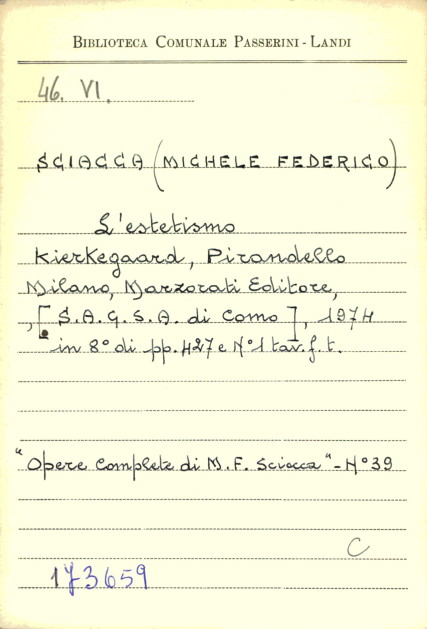 BIBLIOTECA COMUNALE PASSERINI-LANDI
46. VI.
SCIACCA (MICHELE FEDERICO)
L'estetismo
Kierkegaard, Pirandello
Milano, Marzorati Editore,
, [S.A.G.S.A. di Como], 1974
in 8° di pp. 427 e N°1 tav. f. t.
"Opere complete di M. F. Sciacca" - N° 39
C
173659